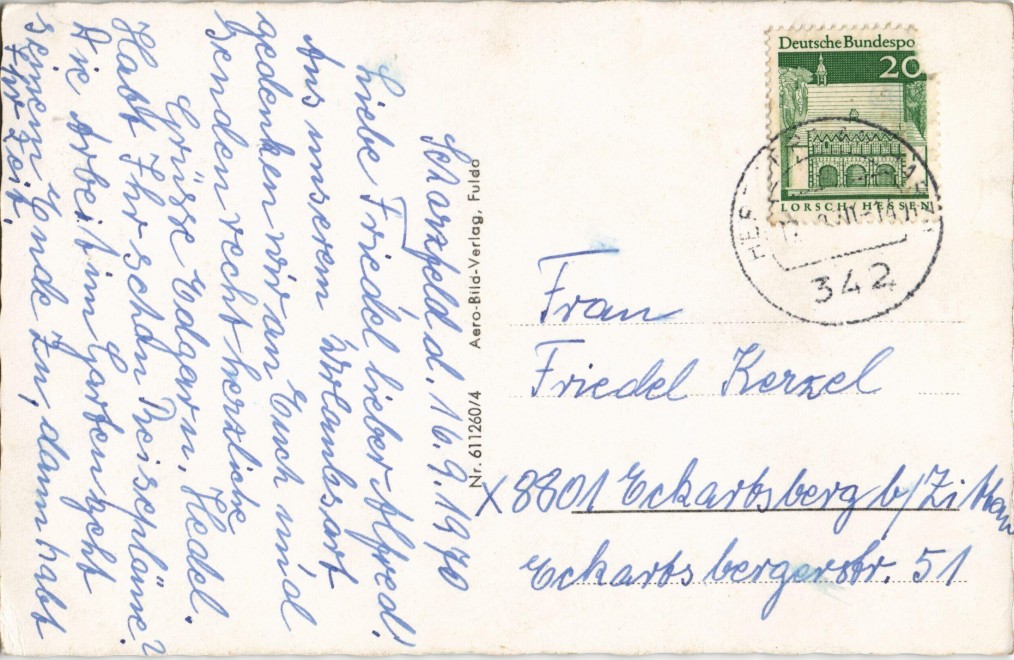 Scharzfeld d. 16.9.1970
Liebe Friedel lieber Alfred!
Aus unserem Urlaubsort
gedenken wir an Euch und
senden recht herzliche
Grüsse Edgar u. Hedel.
Habt Ihr schon Reisepläne?
Die Arbeit im Garten geht
seinem Ende zu, dann habt
Ihr Zeit.
Nr. 611260/4 Aero-Bild-Verlag, Fulda
Deutsche Bundespo
20
LORSCH/HESSEN
342
Frau
Friedel Kerzel
X 8801 Eckartsberg b/Zittau
Eckartsbergerstr. 51